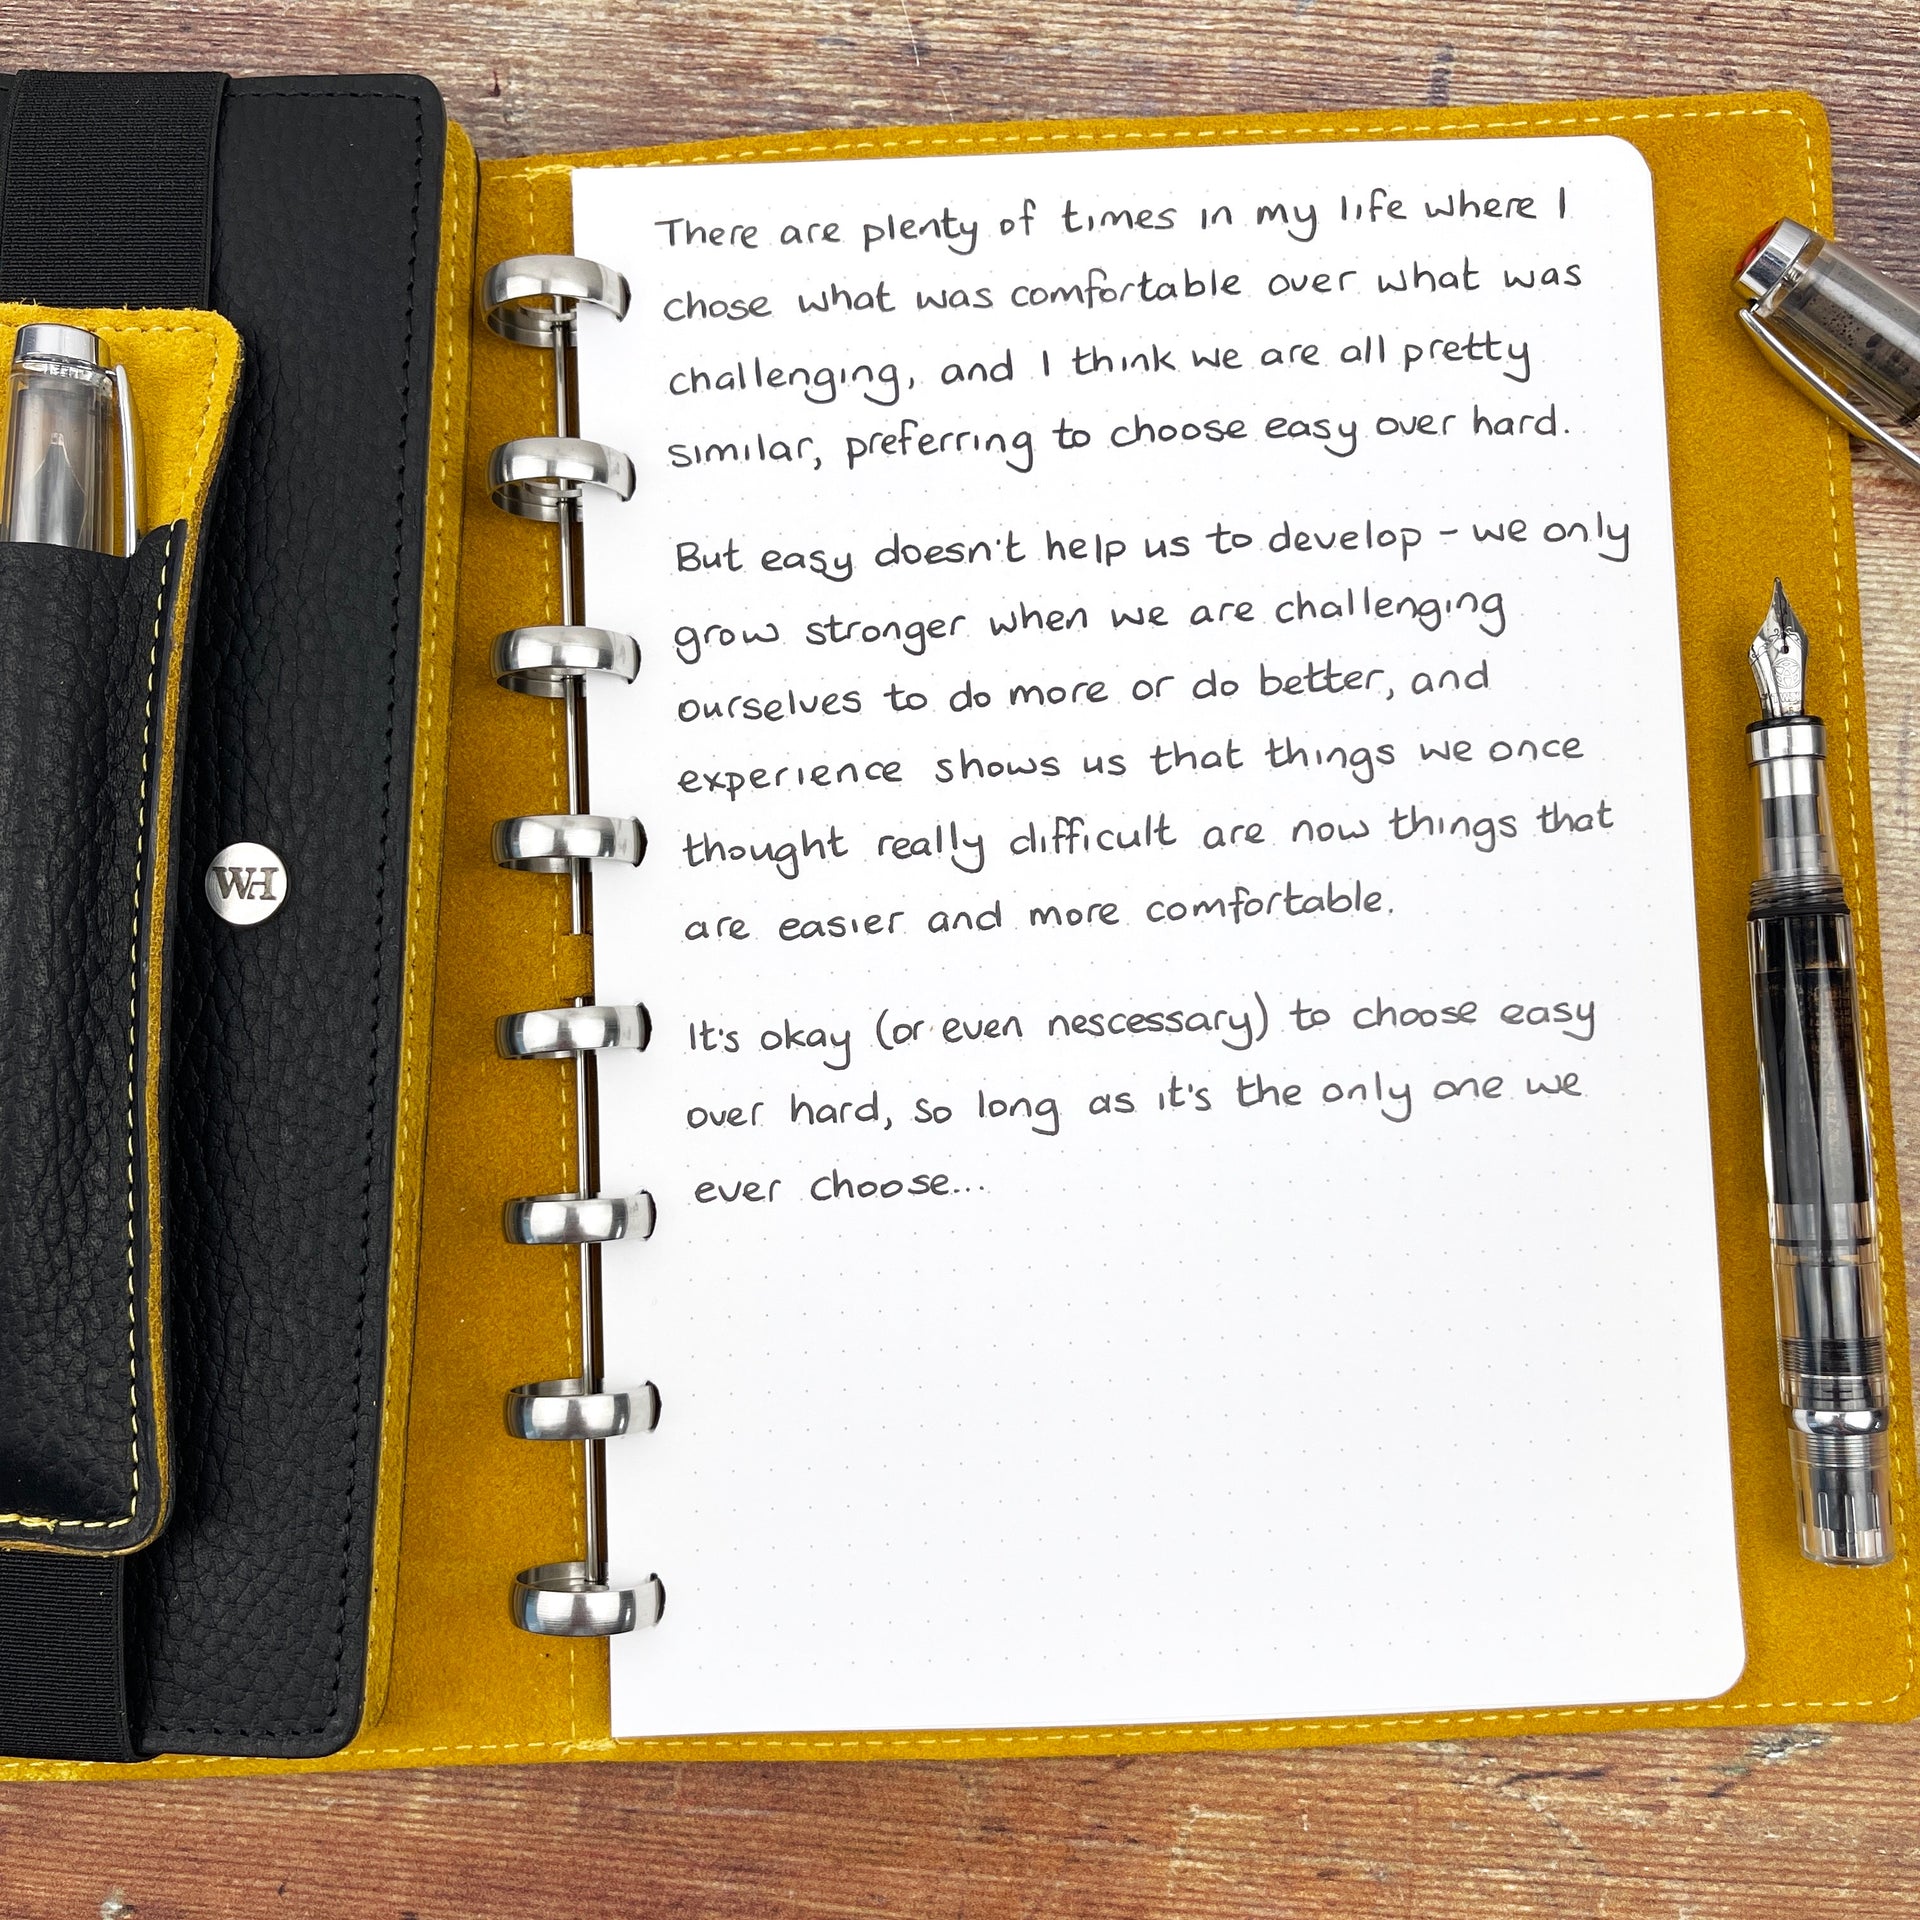 There are plenty of times in my life where I
chose what was comfortable over what was
challenging, and I think we are all pretty
similar, preferring to choose easy over hard.
But easy doesn't help us to develop - we only
grow stronger when we are challenging
ourselves to do more or do better, and
experience shows us that things we once
thought really difficult are now things that
are easier and more comfortable.
It's okay (or even nescessary) to choose easy
over hard, so long as it's the only one we
ever choose...
WH